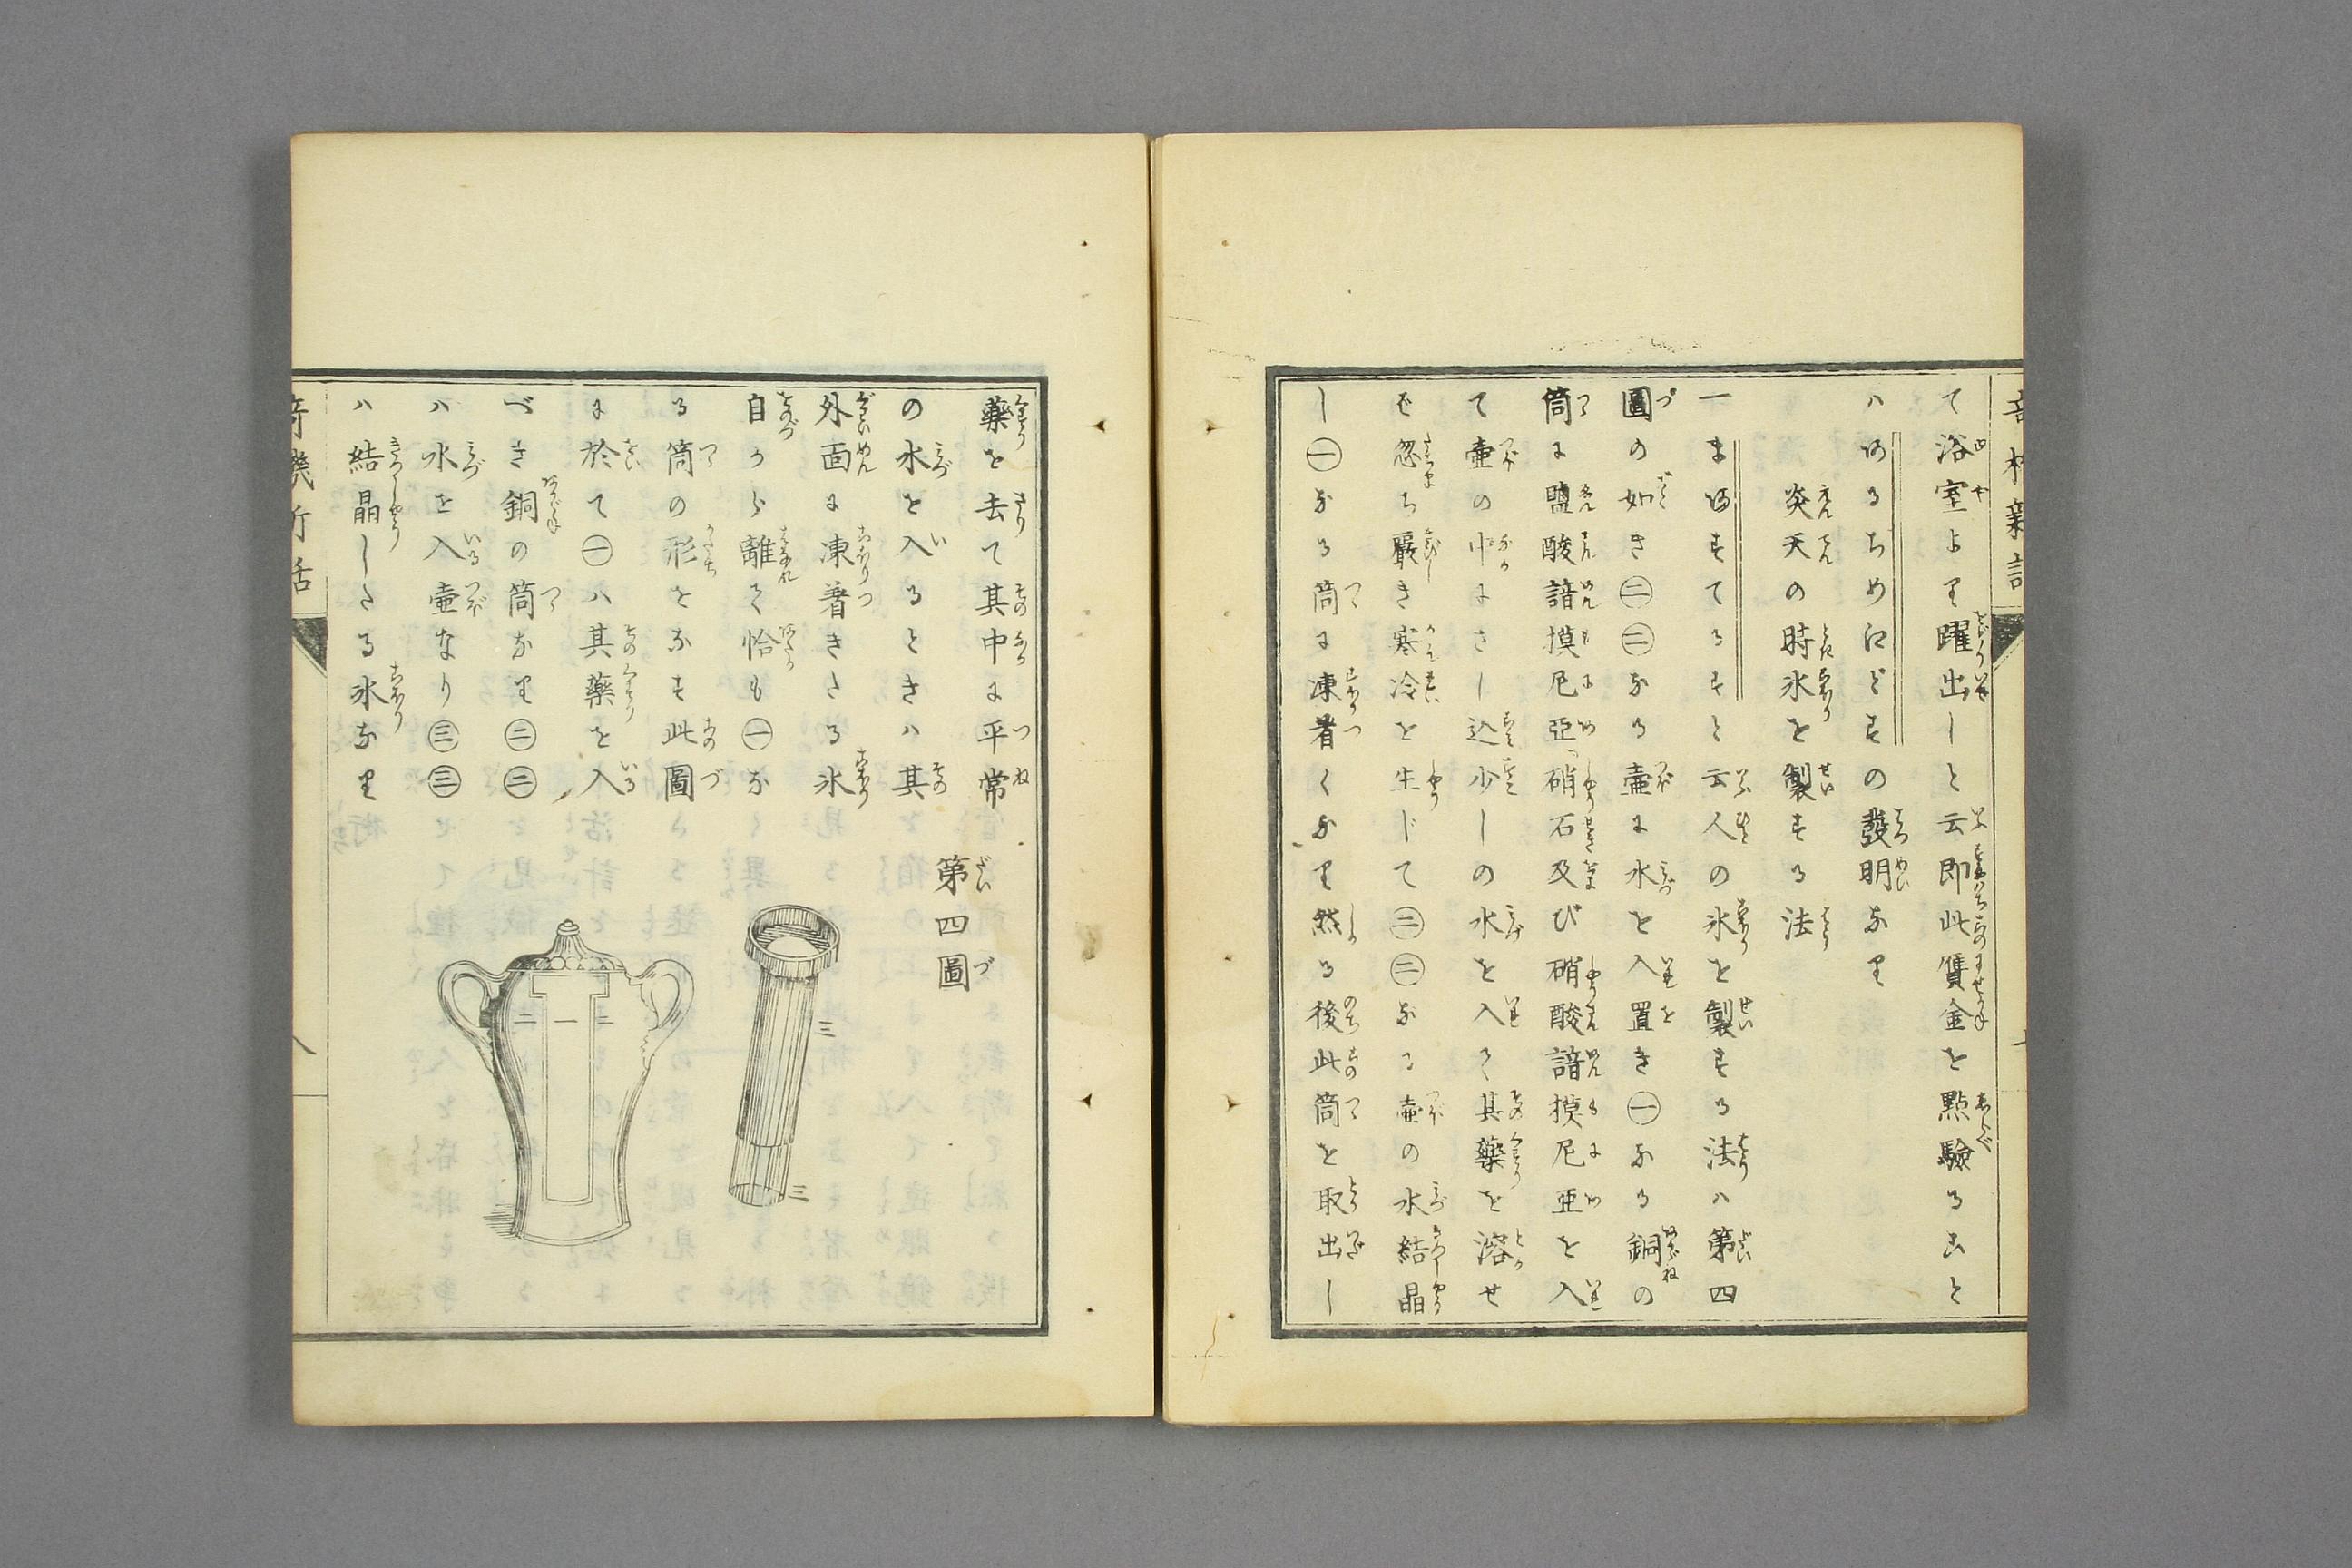 て浴室より躍出しと云即此賃金を點驗ること
ハあるちめにどすの發明なり
炎天の時氷を製する法
一まあすてるすと云人の氷を製する法ハ第四
圖の如き㊁㊁なる壷に水を入置き㊀なる銅の
筒に鹽酸諳摸尼亞硝石及び硝酸諳摸尼亞を入
て壷の中にさし込少しの水を入て其藥を溶せ
ば忽ち嚴き寒冷を生じて㊁㊁なる壷の水結晶
し㊀なる筒に凍着くなり然る後此筒を取出し
藥を去て其中に平常
の水を入るときハ其
外面に凍着きたる氷
自から離て恰も㊀な
る筒の形をなす此圖
に於て㊀ハ其藥を入
べき銅の筒なり㊁㊁
ハ水を入壷なり㊂㊂
ハ結晶したる氷なり
第四圖
三
三
二一二